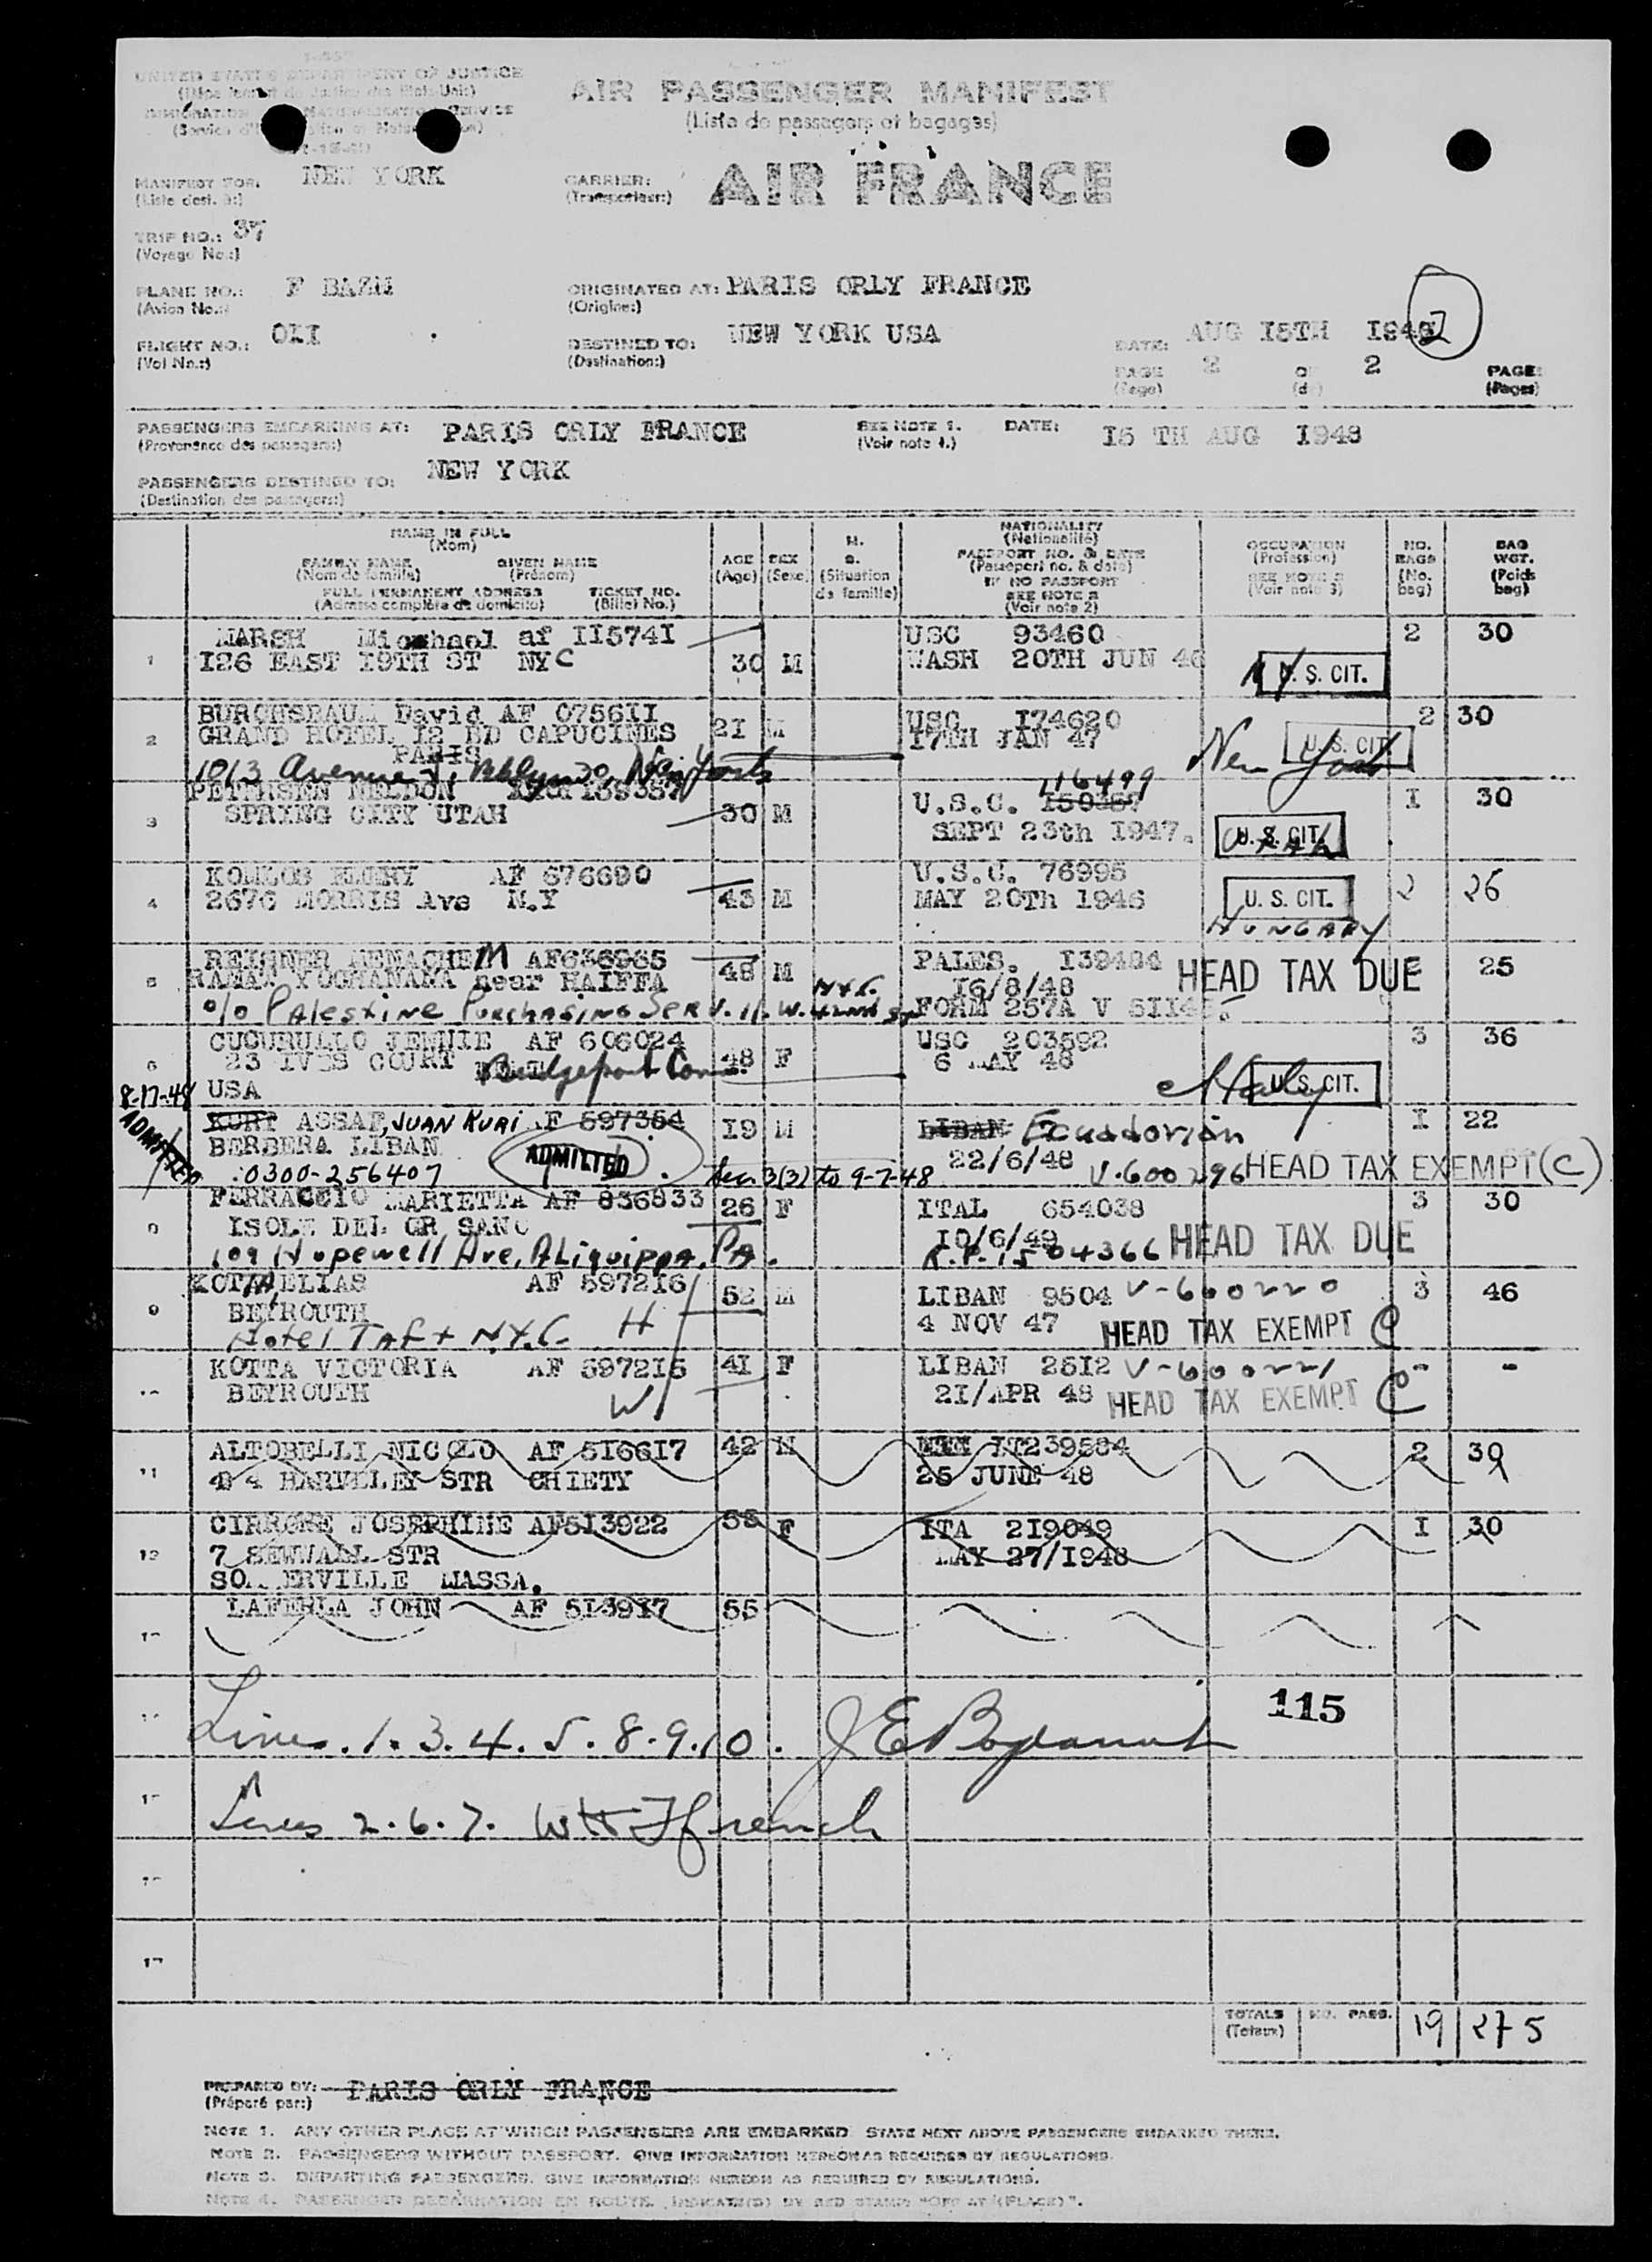 UNITED STATES DEPARTMENT OF JUSTICE
AIR PASSENGER MANIFEST
(Liste de passagers et bagages)
MANIFEST FOR: NEW YORK
(Liste dest. à:)
CARRIER: AIR FRANCE
(Transporteur:)
TRIP NO.: 37
(Voyage No.:)
PLANE NO.: F BAZM
(Avion No.:)
ORIGINATED AT: PARIS ORLY FRANCE
(Origine:)
FLIGHT NO.: OII
(Vol No.:)
DESTINED TO: NEW YORK USA
(Destination:)
DATE: AUG I5TH I948
2
PAGE 2 OF 2 PAGES
(Page) (de) (Pages)
PASSENGERS EMBARKING AT: PARIS ORLY FRANCE SEE NOTE 1. DATE: I5 TH AUG I948
(Provenance des passagers:) (Voir note 1.)
PASSENGERS DESTINED TO: NEW YORK
(Destination des passagers:)
NAME IN FULL
(Nom)
FAMILY NAME GIVEN NAME
(Nom de famille) (Prénom)
FULL PERMANENT ADDRESS TICKET NO.
(Adresse complète de domicile) (Billet No.)
AGE
(Age)
SEX
(Sexe)
M.
S.
(Situation de famille)
NATIONALITY
(Nationalité)
PASSPORT NO. & DATE
(Passeport no. & date)
IF NO PASSPORT
SEE NOTE 2
(Voir note 2)
OCCUPATION
(Profession)
SEE NOTE 3
(Voir note 3)
NO. BAGS
(No. bag)
BAG WGT.
(Poids bag)
1 MARSH Micahael af II574I USC 93460 2 30
I26 EAST I9TH ST NYC 30 M WASH 20TH JUN 46 NY U. S. CIT.
2 David AF 0756II 2I M USC I74620 2 30
GRAND HOTEL I2 BD CAPUCINES I7TH JAN 47 U. S. CIT.
PARIS New York
1013 Avenue J, New York
3 PETERSEN NELDON 116499
SPRING CITY UTAH 30 M U.S.C. I 30
SEPT 23th I947. U. S. CIT. Utah
4 KOMLOS AF 676690 43 M U.S.C. 76995
2676 MORRIS Ave N.Y MAY 20Th I946 U. S. CIT. 2 26
HUNGARY
5 REISNER MENACHEM AF636965 48 M PALES. I39484 HEAD TAX DUE 2 25
RAMAT YOCHANANA near HAIFFA I6/8/48
c/o PALESTINE PURCHASING SERV. 11. W. 42ND ST N.Y.C. FORM 257A V
6 CUCURULLO JENNIE AF 606024 48 F USC 203592 3 36
23 IVES COURT Bridgeport Conn. 6 MAY 48
USA Italy U. S. CIT.
8-17-48
ADMITTED
KURI ASSAF, JUAN KURI AF 597354 I9 M LIBAN Ecuadorian I 22
BERBERA LIBAN 22/6/48
0300-256407 ADMITTED Sec. 3(2) to 9-7-48 V-600296 HEAD TAX EXEMPT (C)
8 FERRACCIO MARIETTA AF 836833 26 F ITAL 654038 3 30
ISOLE DEL GR SANC I0/6/48 HEAD TAX DUE
109 Hopewell Ave, Aliquippa, PA. R.P. 1504366
9 KOTTA, ELIAS AF 597216 52 M LIBAN 9504 V-600220 3 46
BEYROUTH 4 NOV 47 HEAD TAX EXEMPT C
Hotel Taft N.Y.C. H
10 KOTTA VICTORIA AF 597215 41 F LIBAN 25I2 V-600221 - -
BEYROUTH 2I/APR 48 HEAD TAX EXEMPT C
W
11 ALTOBELLI NICOLO AF 5I66I7 42 M 2 30
STR CHIETY 25 JUNE 48
12 CIRRONE JOSEPHINE AF5I3922 F ITA 2I9049 I 30
7 SEWWALL STR MAY 27/I948
SOMERVILLE MASSA.
LAFERLA JOHN AF 5I39I7 55
Lines. 1. 3. 4. 5. 8. 9. 10. 115
Lines 2. 6. 7. French
TOTALS NO. PASS. 19 275
(Totaux)
PREPARED BY: PARIS ORLY FRANCE
(Préparé par:)
NOTE 1. ANY OTHER PLACE AT WHICH PASSENGERS ARE EMBARKED STATE NEXT ABOVE PASSENGERS EMBARKED THERE.
NOTE 2. PASSENGERS WITHOUT PASSPORT. GIVE INFORMATION HEREON AS REQUIRED BY REGULATIONS.
NOTE 3. DEPARTING PASSENGERS. GIVE INFORMATION HEREON AS REQUIRED BY REGULATIONS.
NOTE 4. PASSENGER DEBARKATION EN ROUTE. INDICATE(D) BY RED STAMP "OFF AT (PLACE)".